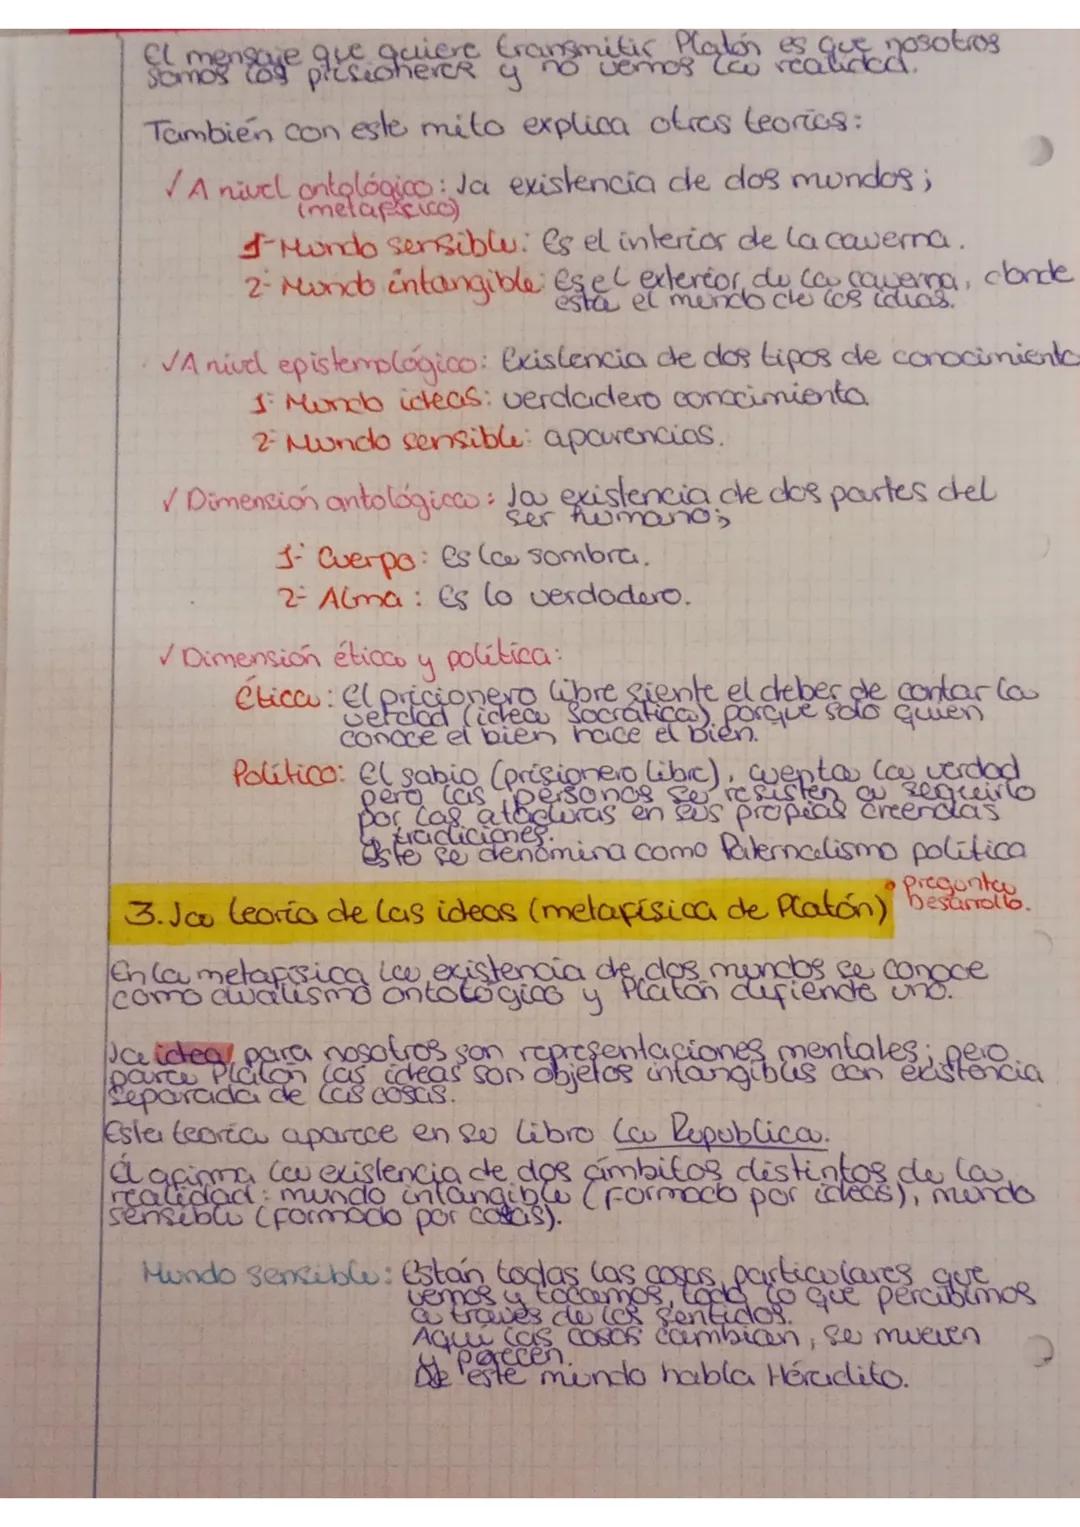 El mensaje que quiere transmitir Platón es que nosotros
somos los prisioneros y no vemos la realidad.
También con este mito explica otras teorías:
✓ A nivel ontológico: La existencia de dos mundos;
(metafísico)
1- Mundo sensible: Es el interior de la caverna.
2- Mundo intangible: Es el exterior de la caverna, donde
está el mundo de las ideas.
✓ A nivel epistemológico: Existencia de dos tipos de conocimiento
1- Mundo ideas: verdadero conocimiento
2- Mundo sensible: apariencias.
✓ Dimensión antológica: La existencia de dos partes del
ser humano;
1- Cuerpo: Es la sombra.
2- Alma: Es lo verdadero.
✓ Dimensión ética y política:
Ética: El pricionero libre siente el deber de contar la
verdad (idea Socrática), porque solo quien
conoce el bien hace el bien.
Político: El sabio (prisionero libre), cuenta la verdad
pero las personas se resisten a seguirlo
por las ataduras en sus propias creencias
y tradiciones.
Este se denomina como Paternalismo política
3. La teoría de las ideas (metafísica de Platón)
• pregunta
Desarrollo.
En la metafísica la existencia de dos mundos se conoce
como dualismo ontológico y Platón defiende uno.
La idea, para nosotros son representaciones mentales; pero
para Platón las ideas son objetos intangibles con existencia
separada de las cosas.
Esta teoría aparece en su libro La República.
Él afirma la existencia de dos ámbitos distintos de la
realidad: mundo intangible (formado por ideas), mundo
sensible (formado por cosas).
Mundo sensible: Están todas las cosas particulares que
vemos y tocamos, todo lo que percibimos
a través de los sentidos.
Aquí las cosas cambian, se mueven
y perecen.
De este mundo habla Héraclito.